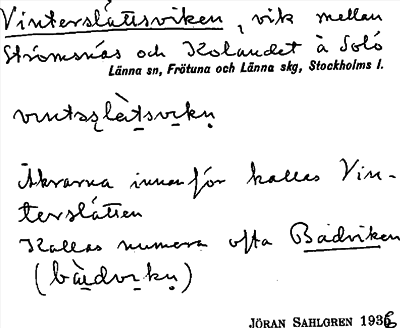 Vinterslåttsviken, vik mellan
Strömsnäs och Kolandet å Solö
Länna sn, Frötuna och Länna skg, Stockholms l.
vıntəslàt̠svi̠kn̥
Åkrarna innanför kallas Vin-
terslåtten
Kallas numera ofta Badviken
(bàdvi̠kn̥)
JÖRAN SAHLGREN 1936